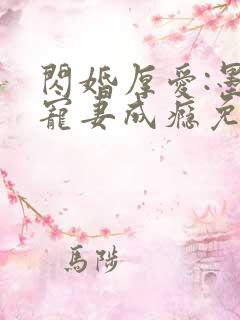 閃婚厚愛:墨
寵妻成癮免
馬陟